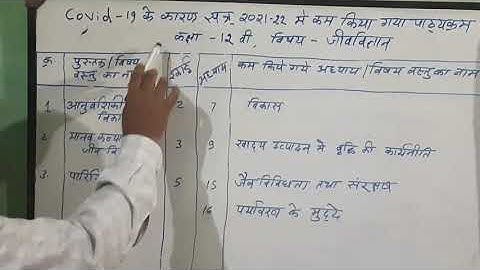 Covid-19 के कारण सत्र 2021-22 मे कम किया गया पाठ्यक्रम
कक्षा -12 वी, विषय - जीवविज्ञान
क्र. पुस्तक/विषय वस्तु का ना इकाई अध्याय कम किये गये अध्याय/विषय वस्तु का नाम
1 आनुवंशिकी विका 2 7 विकास
2. मानव कल्या जीव वि 3 9 खाद्य उत्पादन मे वृद्धि की कार्यनीति
3. पारिि 5 15 जैव विविधता तथा संरक्षण
16 पर्यावरण के मुद्दे